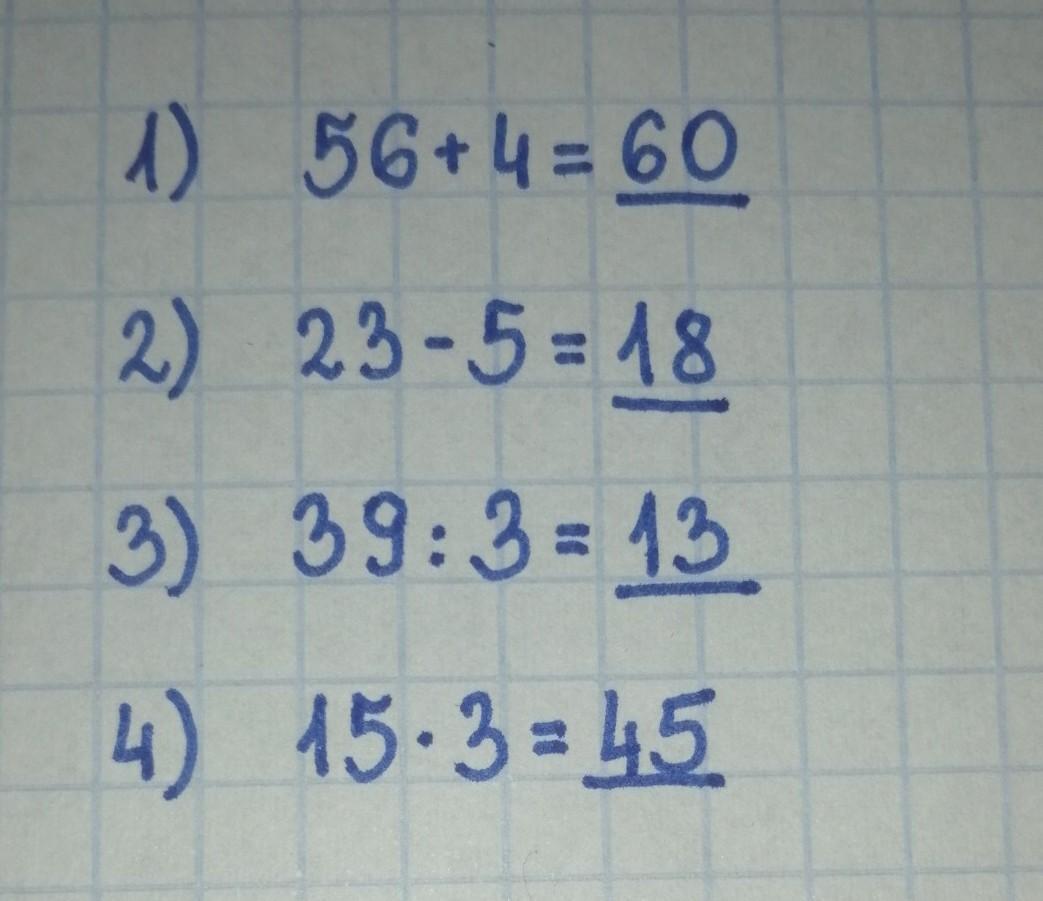 1) 56+4=60
2) 23-5=18
3) 39:3=13
4) 15·3=45